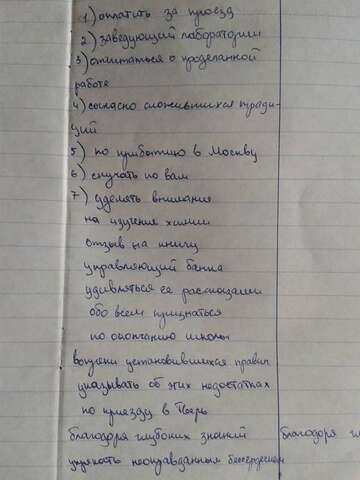 1) оплатить за проезд
2) заведующий лаборатории
3) отчитаться о проделанной
работе
4) согласно сложившихся тради-
ций
5) по прибытию в Москву
6) скучать по вам
7) уделять внимания
на изучение химии
отзыв на книгу
управляющий банка
удивляться её рассказами
обо всем признаться
по окончанию школы
вопреки установившихся правил
указывать об этих недостатках
по приезду в Тверь
благодоря глубоких знаний благодоря гл
упрекать неоправданным бессердечием